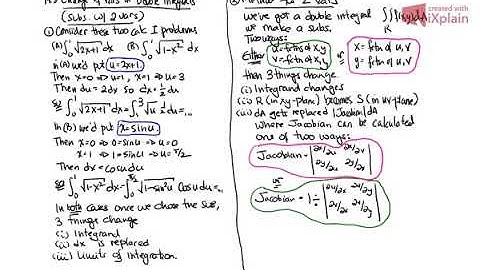 (Subs. w/ 2 vars)
① Consider these two calc I problems
(A) ∫₀¹ √2x+1 dx (B) ∫₀¹ √1-x² dx
In (A) we'd put u=2x+1.
Then x=0 ⇒ u=1, x=1 ⇒ u=3
Then du = 2dx so dx = ½du
So ∫₀¹ √2x+1 dx = ∫₁³ √u ½du = ...
In (B) we'd put x=sinu.
Then x=0 ⇒ 0=sinu ⇒ u=0
x=1 ⇒ 1=sinu ⇒ u=π/2
Then dx = cosu du
So ∫₀¹ √1-x² dx = ∫₀^π/2 √1-sin²u cosu du = ...
In both cases once we chose the sub,
3 things change
(i) Integrand
(ii) dx is replaced
(iii) Limits of integration
We've got a double integral
we make a subs.
Two ways:
Either u=fctn of x,y
v=fctn of x,y
or x = fctn of u,v
y = fctn of u,v
then 3 things change
(i) Integrand changes
(ii) R (in xy-plane) becomes S (in uv-plane)
(iii) dA gets replaced |Jacobian| dA
Where Jacobian can be calculated
one of two ways:
Jacobian = | ∂x/∂u ∂x/∂v |
| ∂y/∂u ∂y/∂v |
or
Jacobian = 1 ÷ | ∂u/∂x ∂u/∂y |
| ∂v/∂x ∂v/∂y |
created with
AiXplain